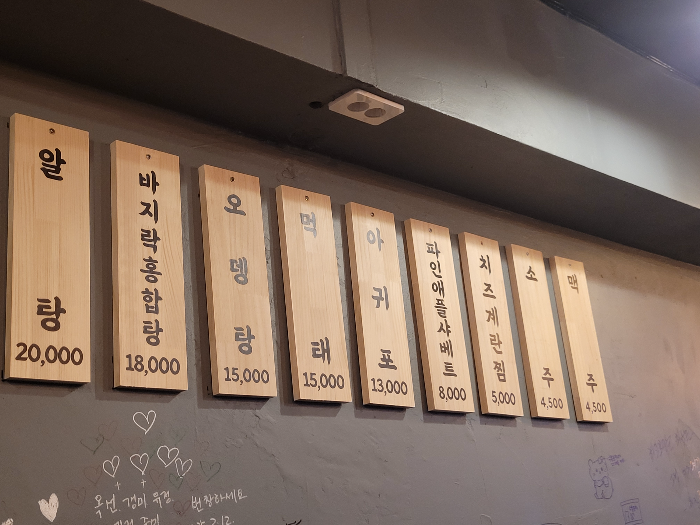 알탕
20,000
바지락홍합탕
18,000
오뎅탕
15,000
먹태
15,000
아귀포
13,000
파인애플샤베트
8,000
치즈계란찜
5,000
소주
4,500
맥주
4,500
옥선 갱미 유정
번창하세요